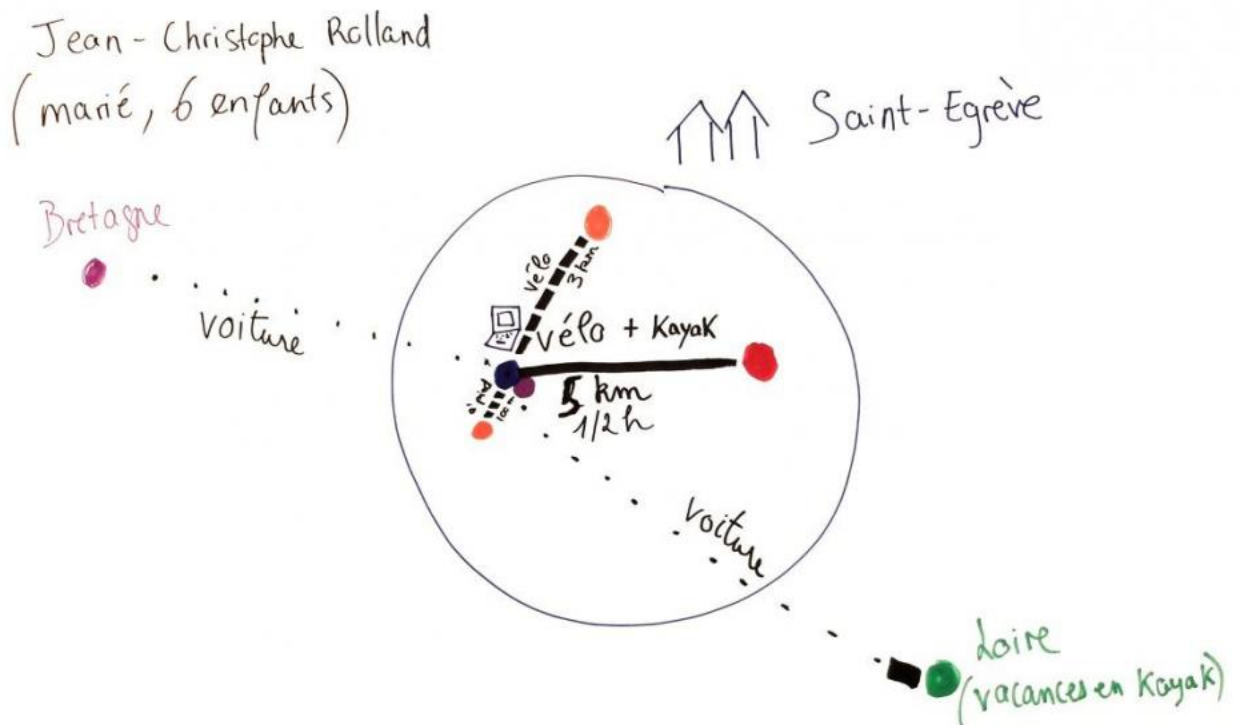 Jean-Christophe Rolland
(marié, 6 enfants)
Saint-Egrève
Bretagne
voiture
vélo
3 km
vélo + Kayak
5 km
1/2 h
à pied
100m
voiture
Loire
(vacances en Kayak)